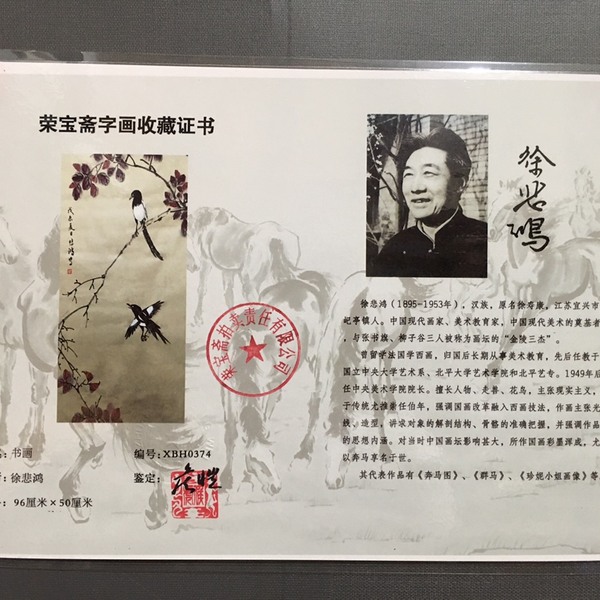 荣宝斋字画收藏证书
徐悲鸿
荣宝斋拍卖责任有限公司
书画
编号: XBH0374
徐悲鸿
鉴定:
96厘米×50厘米
徐悲鸿 (1895-1953年), 汉族, 原名徐寿康, 江苏宜兴市
屺亭镇人。中国现代画家、美术教育家, 中国现代美术的奠基者
与张书旗、柳子谷三人被称为画坛的“金陵三杰”。
曾留学法国学西画, 归国后长期从事美术教育, 先后任教于
国立中央大学艺术系、北平大学艺术学院和北平艺专。1949年后
任中央美术学院院长。擅长人物、走兽、花鸟, 主张现实主义,
于传统尤推崇任伯年, 强调国画改革融入西画技法, 作画主张光
线、造型, 讲求对象的解剖结构、骨骼的准确把握, 并强调作品
的思想内涵。对当时中国画坛影响甚大, 所作国画彩墨浑成, 尤
以奔马享名于世。
其代表作品有《奔马图》、《群马》、《珍妮小姐画像》等